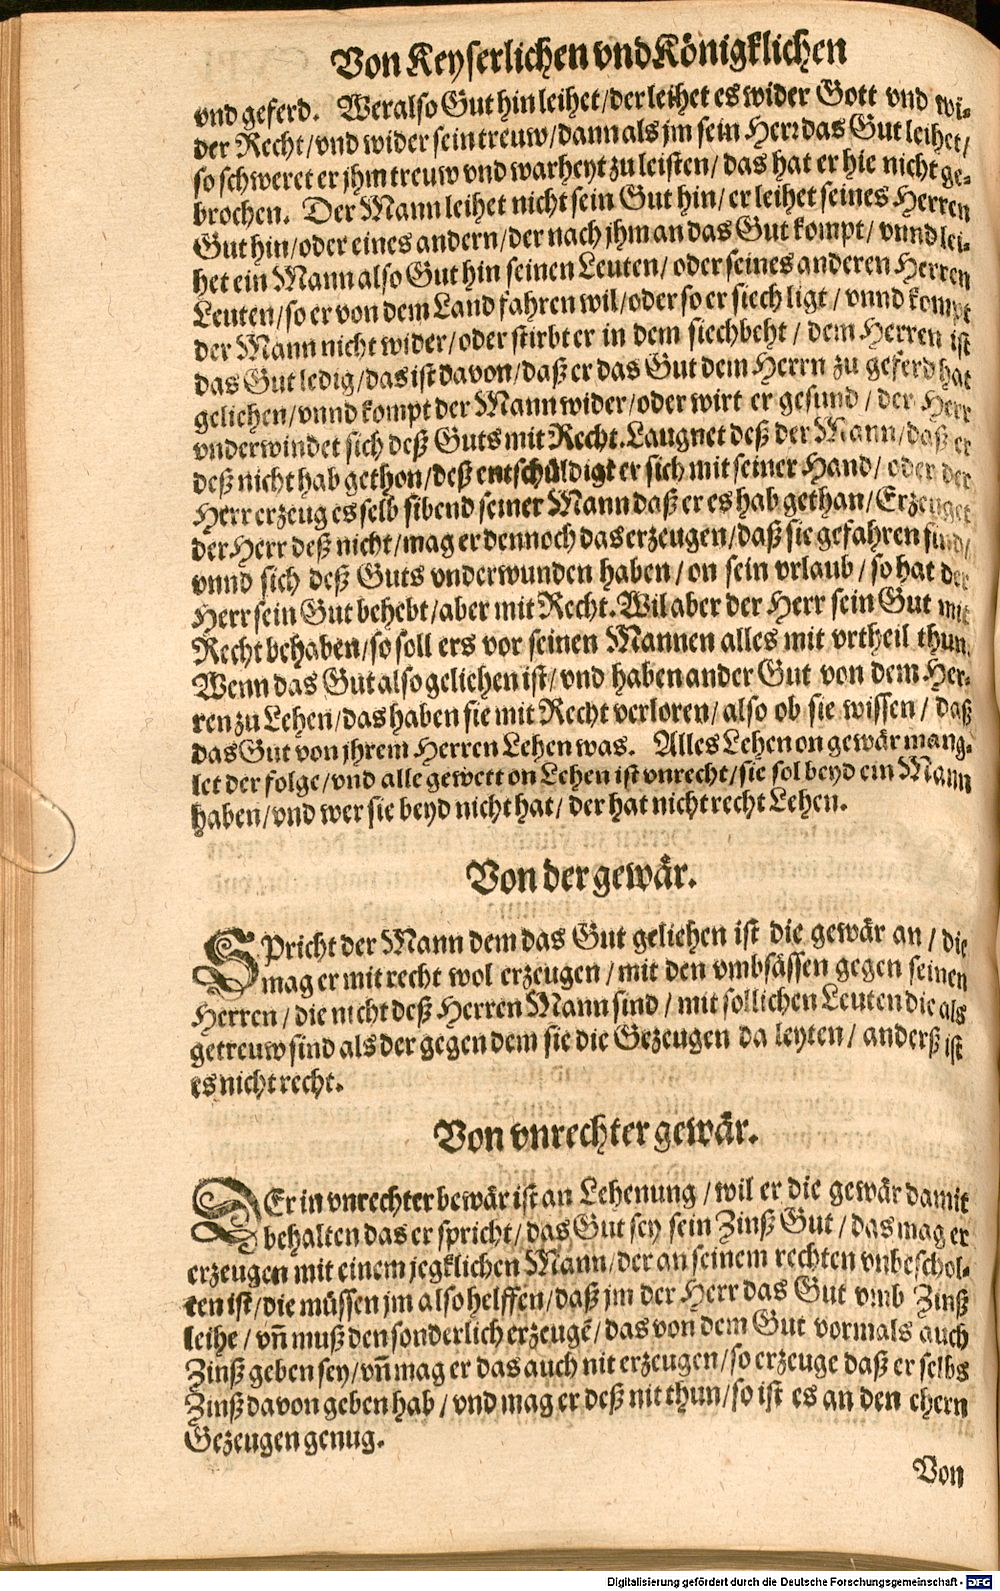 Von Keyserlichen vnd Königklichen
vnd geferd. Wer also Gut hin leihet/der leihet es wider Gott vnd wi-
der Recht/vnd wider sein treuw/dann als jm sein Herr das Gut leihet/
so schweret er jhm treuw vnd warheyt zu leisten/das hat er hie nicht ge-
brochen. Der Mann leihet nicht sein Gut hin/er leihet seines Herren
Gut hin/oder eines andern/der nach jhm an das Gut kompt/vnnd lei-
het ein Mann also Gut hin seinen Leuten/oder seines anderen Herren
Leuten/so er von dem Land fahren wil/oder so er siech ligt/vnnd kompt
der Mann nicht wider/oder stirbt er in dem siechbeht/dem Herren ist
das Gut ledig/das ist davon/daß er das Gut dem Herrn zu geferd hat
gelichen/vnnd kompt der Mann wider/oder wirt er gesund/der Herr
vnderwindet sich deß Guts mit Recht. Laugnet deß der Mann/daß er
deß nicht hab gethon/deß entschüldigt er sich mit seiner Hand/oder der
Herr erzeug es selb sibend seiner Mann daß er es hab gethan/Erzeuget
der Herr deß nicht/mag er dennoch das erzeugen/daß sie gefahren sind/
vnnd sich deß Guts vnderwunden haben/on sein vrlaub/so hat der
Herr sein Gut behebt/aber mit Recht. Wil aber der Herr sein Gut mit
Recht behaben/so soll ers vor seinen Mannen alles mit vrtheil thun.
Wenn das Gut also geliehen ist/vnd haben ander Gut von dem Her-
ren zu Lehen/das haben sie mit Recht verloren/also ob sie wissen/daß
das Gut von jhrem Herren Lehen was. Alles Lehen on gewär mang-
let der folge/vnd alle gewett on Lehen ist vnrecht/sie sol beyd ein Mann
haben/vnd wer sie beyd nicht hat/der hat nicht recht Lehen.
Von der gewär.
SPricht der Mann dem das Gut geliehen ist die gewär an/die
mag er mit recht wol erzeugen/mit den vmbsässen gegen seinen
Herren/die nicht deß Herren Mann sind/mit sollichen Leuten die als
getreuw sind als der gegen dem sie die Gezeugen da leyten/anderß ist
es nicht recht.
Von vnrechter gewär.
DEr in vnrechter bewär ist an Lehenung/wil er die gewär damit
behalten das er spricht/das Gut sey sein Zinß Gut/das mag er
erzeugen mit einem jegklichen Mann/der an seinem rechten vnbeschol-
ten ist/die müssen jm also helffen/daß jm der Herr das Gut vmb Zinß
leihe/vñ muß den sonderlich erzeugẽ/das von dem Gut vormals auch
Zinß geben sey/vñ mag er das auch nit erzeugen/so erzeuge daß er selbs
Zinß davon geben hab/vnd mag er deß nit thun/so ist es an den ehern
Gezeugen genug.
Von
Digitalisierung gefördert durch die Deutsche Forschungsgemeinschaft - DFG